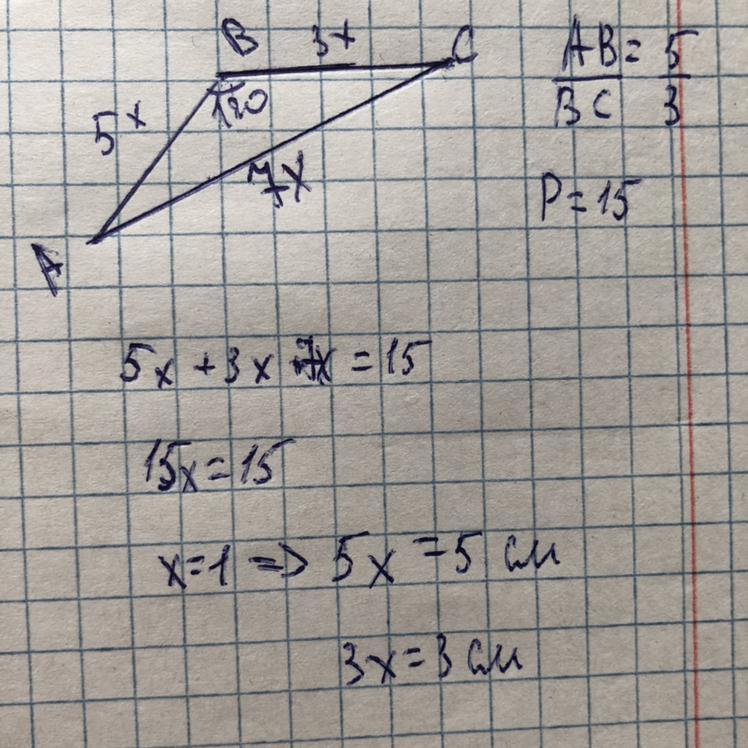 B 3x C
5x 120
7x
A
AB = 5
BC 3
P = 15
5x + 3x + 7x = 15
15x = 15
x = 1 => 5x = 5 см
3x = 3 см